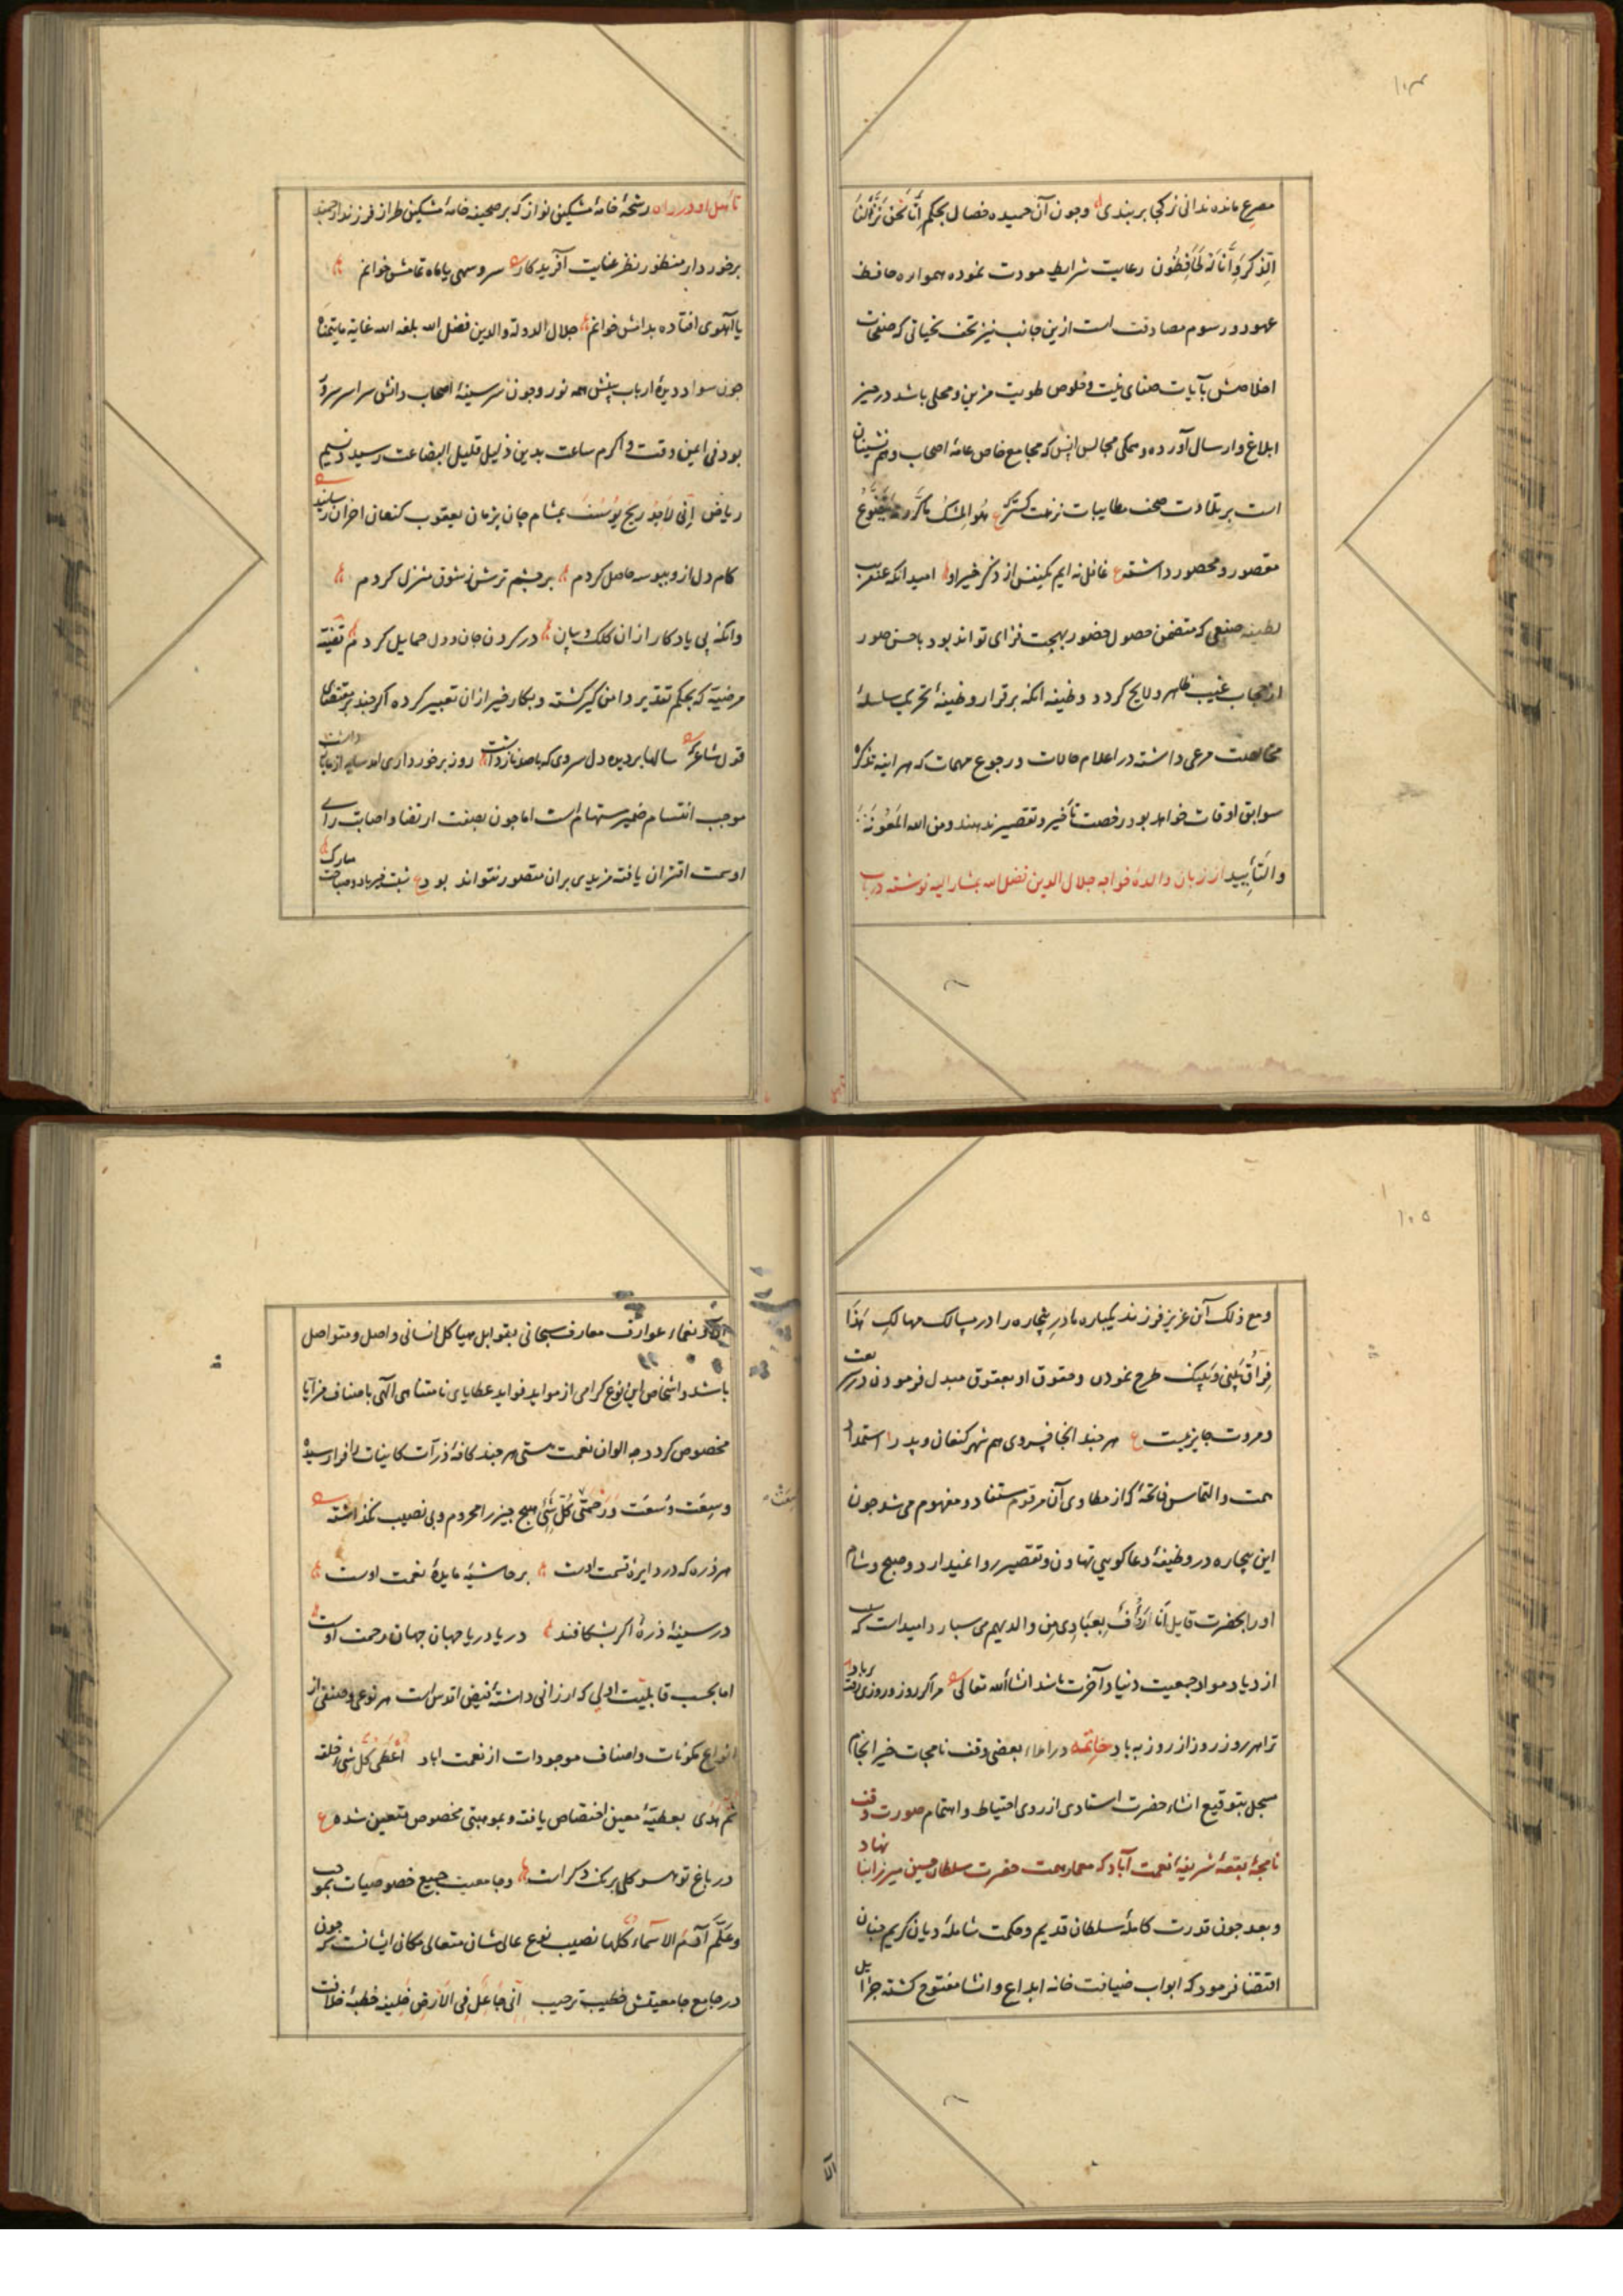 ۱۰۴
مصرع مانده ندانی ز کجا بر بندی وچون آن حمیده خصال بحکم إِنَّا نَحْنُ نَزَّلْنَا
الذِّكْرَ وَإِنَّا لَهُ لَحَافِظُون رعایت شرایط مودت نموده همواره حافظ
عهود و رسوم مصادقت است ازین جانب نیز تحف تحیاتی که صفحات
اخلاصش بآیات صفای نیت و خلوص طویت مزین و محلی باشد در حیز
ابلاغ و ارسال آورده و همکی مجالس انس که مجامع خاص عامهٔ اصحاب و همنشینان
است بر تلاوت صحف مطایبات نزهت کستر ع هو المسک ما کررته یتضوع
مقصور و محصور داشته ع غافل نه ایم یکنفس از ذکر خیر او امید انکه عنقریب
لطیفه صنعی که متضمن حصول حضور بهجت فزای تواند بود باحسن صور
از حجاب غیب ظاهر و لایح کردد وظیفه انکه برقرار وظیفهٔ تحریک سلسلهٔ
مخالصت مرعی داشته در اعلام حالات و رجوع مهمات که هر اینه تذکرهٔ
سوابق اوقات خواهد بود رخصت تأخیر و تقصیر ندهند ومن الله المعونة
والتأیید از زبان والدهٔ خواجه جلال الدین فضل الله بمشار الیه نوشته در باب
تأهل او در
رشحهٔ خامهٔ مشکین نواز که بر صحیفه خامهٔ مشکین طراز فرزند ارجمند
برخوردار منظور نظر عنایت آفریدکار سرو سهی یا ماه تمامش خوانم
یا آهوی افتاده بدامش خوانم جلال الدولة والدین فضل الله بلغه الله غایة مایتمناه
چون سواد دیدهٔ ارباب بینش همه نور وچون سر سینهٔ اصحاب دانش سراسر سرور
بود فی ایمن وقت و اکرم ساعت بدین ذلیل قلیل البضاعت رسید و نسیم
ریاض إِنِّي لَأَجِدُ رِيحَ يُوسُفَ بمشام جان پژمان یعقوب کنعان احزان رسانید
کام دل ازو ببوسه حاصل کردم بر چشم ترش ز شوق منزل کردم
وانکه پی یادکار ازان کلک و بیان در کردن جان و دل حمایل کردم قضیه
مرضیه که بحکم تقدیر دامن کیر کشته و بکار خیر ازان تعبیر کرده اکر چند بر مقتضای
قول شاعر که سالها بر دیده دل سروی که با صد ناز داشت روز برخورداری
موجب انقسام ضمیر مستهام است اما چون بصفت ارتضا و اصابت رای
اوسمت اقتران یافته مزیدی بران متصور نتواند بود ع
۱۰۵
ومع ذلک آن عزیز فرزند یکباره مادر بیچاره را در مسالک مهالک هَذَا
فِرَاقُ بَيْنِي وَبَيْنِكَ طرح نمودن و حقوق او بعقوق مبدل فرمودن در
و مروت جایز نیست ع هر چند انجا میروی هم شهر کنعان و پدر استمداد
همت و التماس فاتحهٔ که از مطاوی آن مرقوم مستفاد و مفهوم می شود چون
این بیچاره در وظیفهٔ دعا کویی تهاون و تقصیر روا نمیدارد و صبح و شام
او را بحضرت قایل أنا أرأف بعبادی من والدیهم می سپارد امید است که
از دیاد مواد جمعیت دنیا و آخرت باشد انشاالله تعالی
ترا هر روز روز از روز به باد خاتمه در املاء بعضی وقف نامجات خیر انجام
مسجل بتوقیع انشاء حضرت استادی از روی احتیاط و اهتمام صورت وقف
نامچهٔ بقعهٔ شریفهٔ نعمت آباد که معمار همت حضرت سلطان حسین میرزا بنا نهاد
وبعد چون قدرت کاملهٔ سلطان قدیم و حکمت شاملهٔ دیان کریم چنان
اقتضا فرمود که ابواب ضیافت خانه ابداع و انشا مفتوح کشته
و نعماء عوارف معارف سبحانی بقوابل هیاکل انسانی واصل و متواصل
باشد و اشخاص این نوع کرامی از مواید فواید عطایای نامتناهی الهی باصناف مزایا
مخصوص کردد چه الوان نعمت هستی هر چند کافهٔ ذرات کاینات را فرا رسیده
وسعت وَسِعَت وَرَحْمَتِي كُلَّ شَيْءٍ هیچ چیز را محروم و بی نصیب نکذاشته
هر ذره که در دایرهٔ قسمت اوست بر حاشیهٔ مایدهٔ نعمت اوست
در سینهٔ ذرهٔ اکر بشکافند دریا دریا جهان جهان رحمت اوست
اما بحسب قابلیت اولی که ارزانی داشتهٔ فیض اقدس است هر نوعی و صنفی از
انواع مکونات و اصناف موجودات از نعمت اباد أعطى كل شيء خلقه
ثم هدى بعطیهٔ معین اختصاص یافته و بموهبتی مخصوص متعین شده ع
در باغ تو هر کلی برنک دکر است وجامعیت جمیع خصوصیات بموجب
وعلم آدم الأسماء كلها نصیب نوع عالی شان متعالی مکان انسانست که چون
در جامع جامعیتش خطیب ترحیب إني جاعل في الأرض خليفة خطبهٔ خلافت